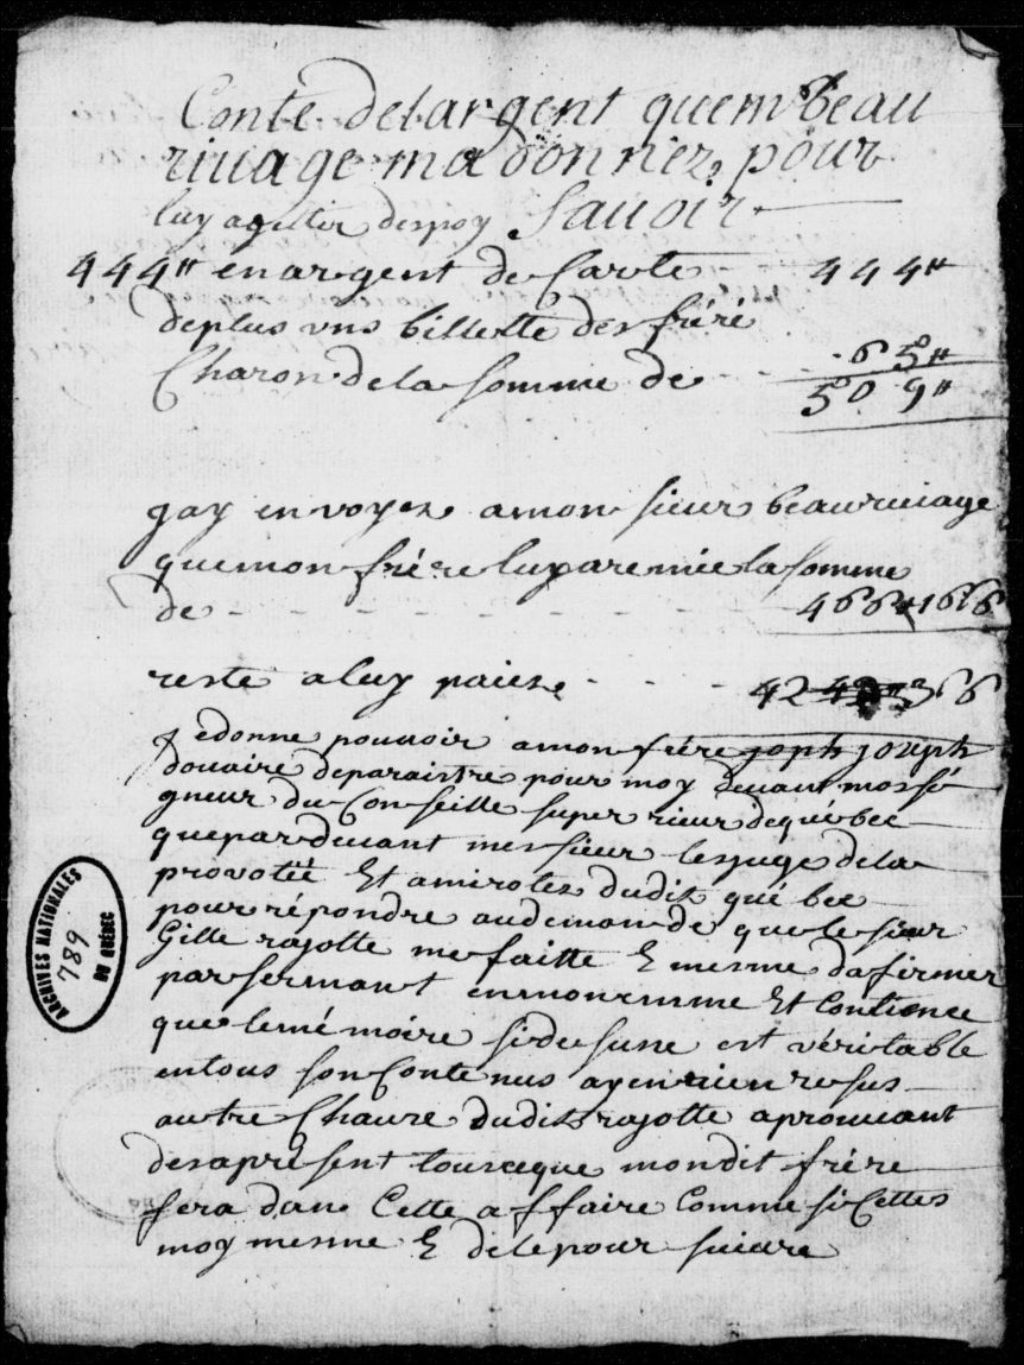 Conte delargent quemr beau
riuage ma donnez pour
luy agetter despoy Sauoir
444tt en argent de Carte - - 444tt
deplus vns billette des fréré
Charon de la somme de - - - 65tt
509tt
jay en voyez amon sieur beauriuage
quemon frére luy aremiée la somme
de - - - - - - 466tt 16s 6
reste aluy paier - - - 42
Jedonne pouuoir amon frére joph joseph
douaire deparaistre pour moy deuant mossé
gneur du Conseille super rieur dequébec
quepardeuant messieur lesjuge dela
provotéé Et amirotez dudit qué bec
pour répondre audemande que le sieur
Gille rajotte me faitte & mesme dafirmer
par sermant enmonemme Et Contience
que lemé moire sidesune est véritable
entous son Contenus ayen rien resus
autre Chause dudit rajotte aprouuant
desaprésent tousceque mondit frére
fera dans Cette affaire Comme si Cettes
moy mesme & dele pour suiure
ARCHIVES NATIONALES
789
DU QUÉBEC